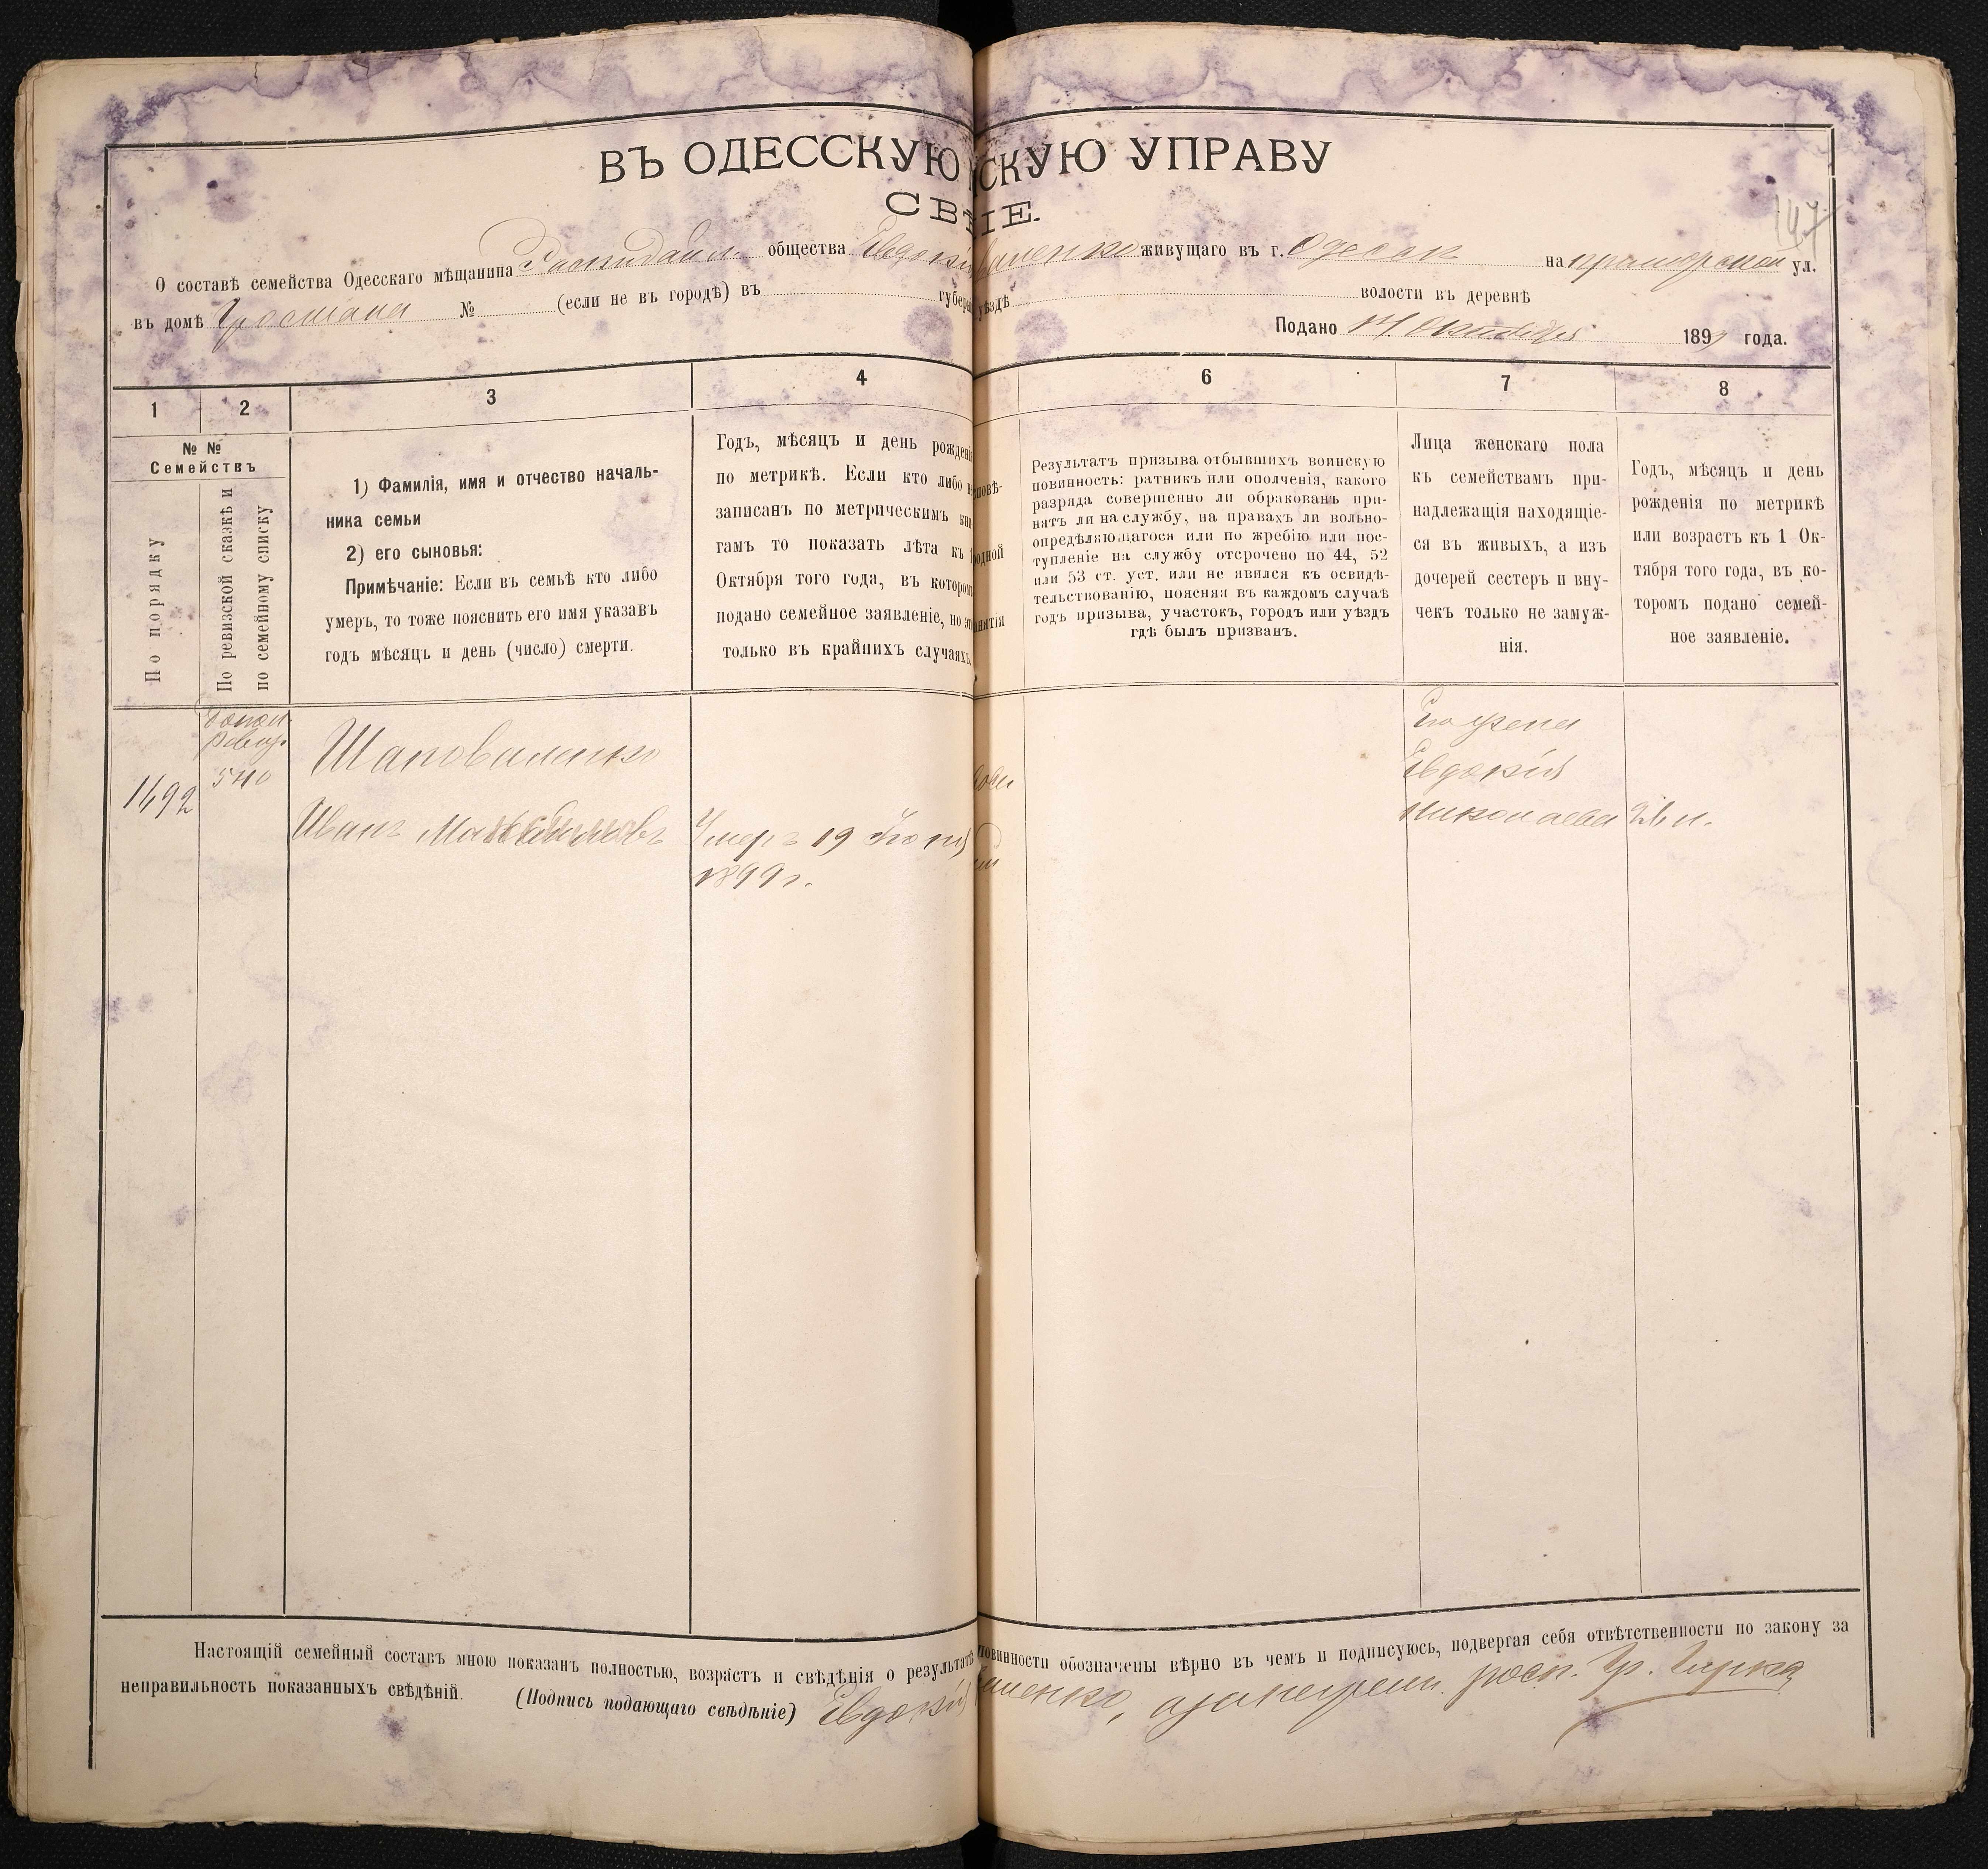 ВЪ ОДЕССКУЮ СКУЮ УПРАВУ
СВ ІЕ.
147
О составѣ семейства Одесскаго мѣщанина общества Евдокі живущаго въ г. Одессѣ на ул.
въ домѣ № (если не въ городѣ) въ губер уѣздѣ волости въ деревнѣ
Подано Октября 189 года.
1 2 3 4 6 7 8
№ №
Семействъ
По порядку
По ревизской сказкѣ и
по семейному списку
1) Фамилія, имя и отчество началь-
ника семьи
2) его сыновья:
Примѣчаніе: Если въ семьѣ кто либо
умеръ, то тоже пояснить его имя указавъ
годъ мѣсяцъ и день (число) смерти.
Годъ, мѣсяцъ и день рожденія
по метрикѣ. Если кто либо
записанъ по метрическимъ кни-
гамъ то показать лѣта къ 1
Октября того года, въ котором
подано семейное заявленіе, но
только въ крайнихъ случаяхъ.
повѣ-
одной
нятія
Результатъ призыва отбывшихъ воинскую
повинность: ратникъ или ополченія, какого
разряда совершенно ли обракованъ при-
нятъ ли на службу, на правахъ ли вольно-
опредѣляющагося или по жребію или пос-
тупленіе на службу отсрочено по 44, 52
или 53 ст. уст. или не явился къ освидѣ-
тельствованію, поясняя въ каждомъ случаѣ
годъ призыва, участокъ, городъ или уѣздъ
гдѣ былъ призванъ.
Лица женскаго пола
къ семействамъ при-
надлежащія находящіе-
ся въ живыхъ, а изъ
дочерей сестеръ и вну-
чекъ только не замуж-
нія.
Годъ, мѣсяцъ и день
рожденія по метрикѣ
или возрастъ къ 1 Ок-
тября того года, въ ко-
торомъ подано семей-
ное заявленіе.
1692
540
Шаповаленко
Иванъ
Умеръ 19 Іюня
1899 г.
Его жена
Евдокія
Николаева
Настоящій семейный составъ мною показанъ полностью, возрастъ и свѣдѣнія о результатѣ повинности обозначены вѣрно въ чемъ и подписуюсь, подвергая себя отвѣтственности по закону за
неправильность показанныхъ свѣдѣній. (Подпись подающаго свѣдѣніе) Евдокія ленко,